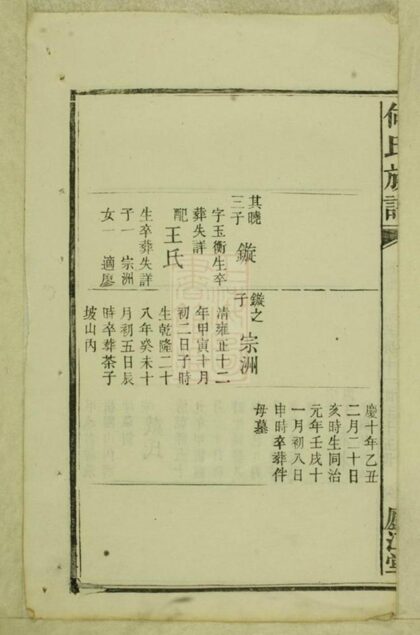 何氏族譜
廬江堂
其曉
三子
鏇
字玉衡生卒
葬失詳
配王氏
生卒葬失詳
子一 宗洲
女一 適廖
鏇之
子
宗洲
清雍正十二
年甲寅十月
初二日子時
生乾隆二十
八年癸未十
月初五日辰
時卒葬茶子
坡山內
慶十年乙丑
二月二十日
亥時生同治
元年壬戌十
一月初八日
申時卒葬件
母墓